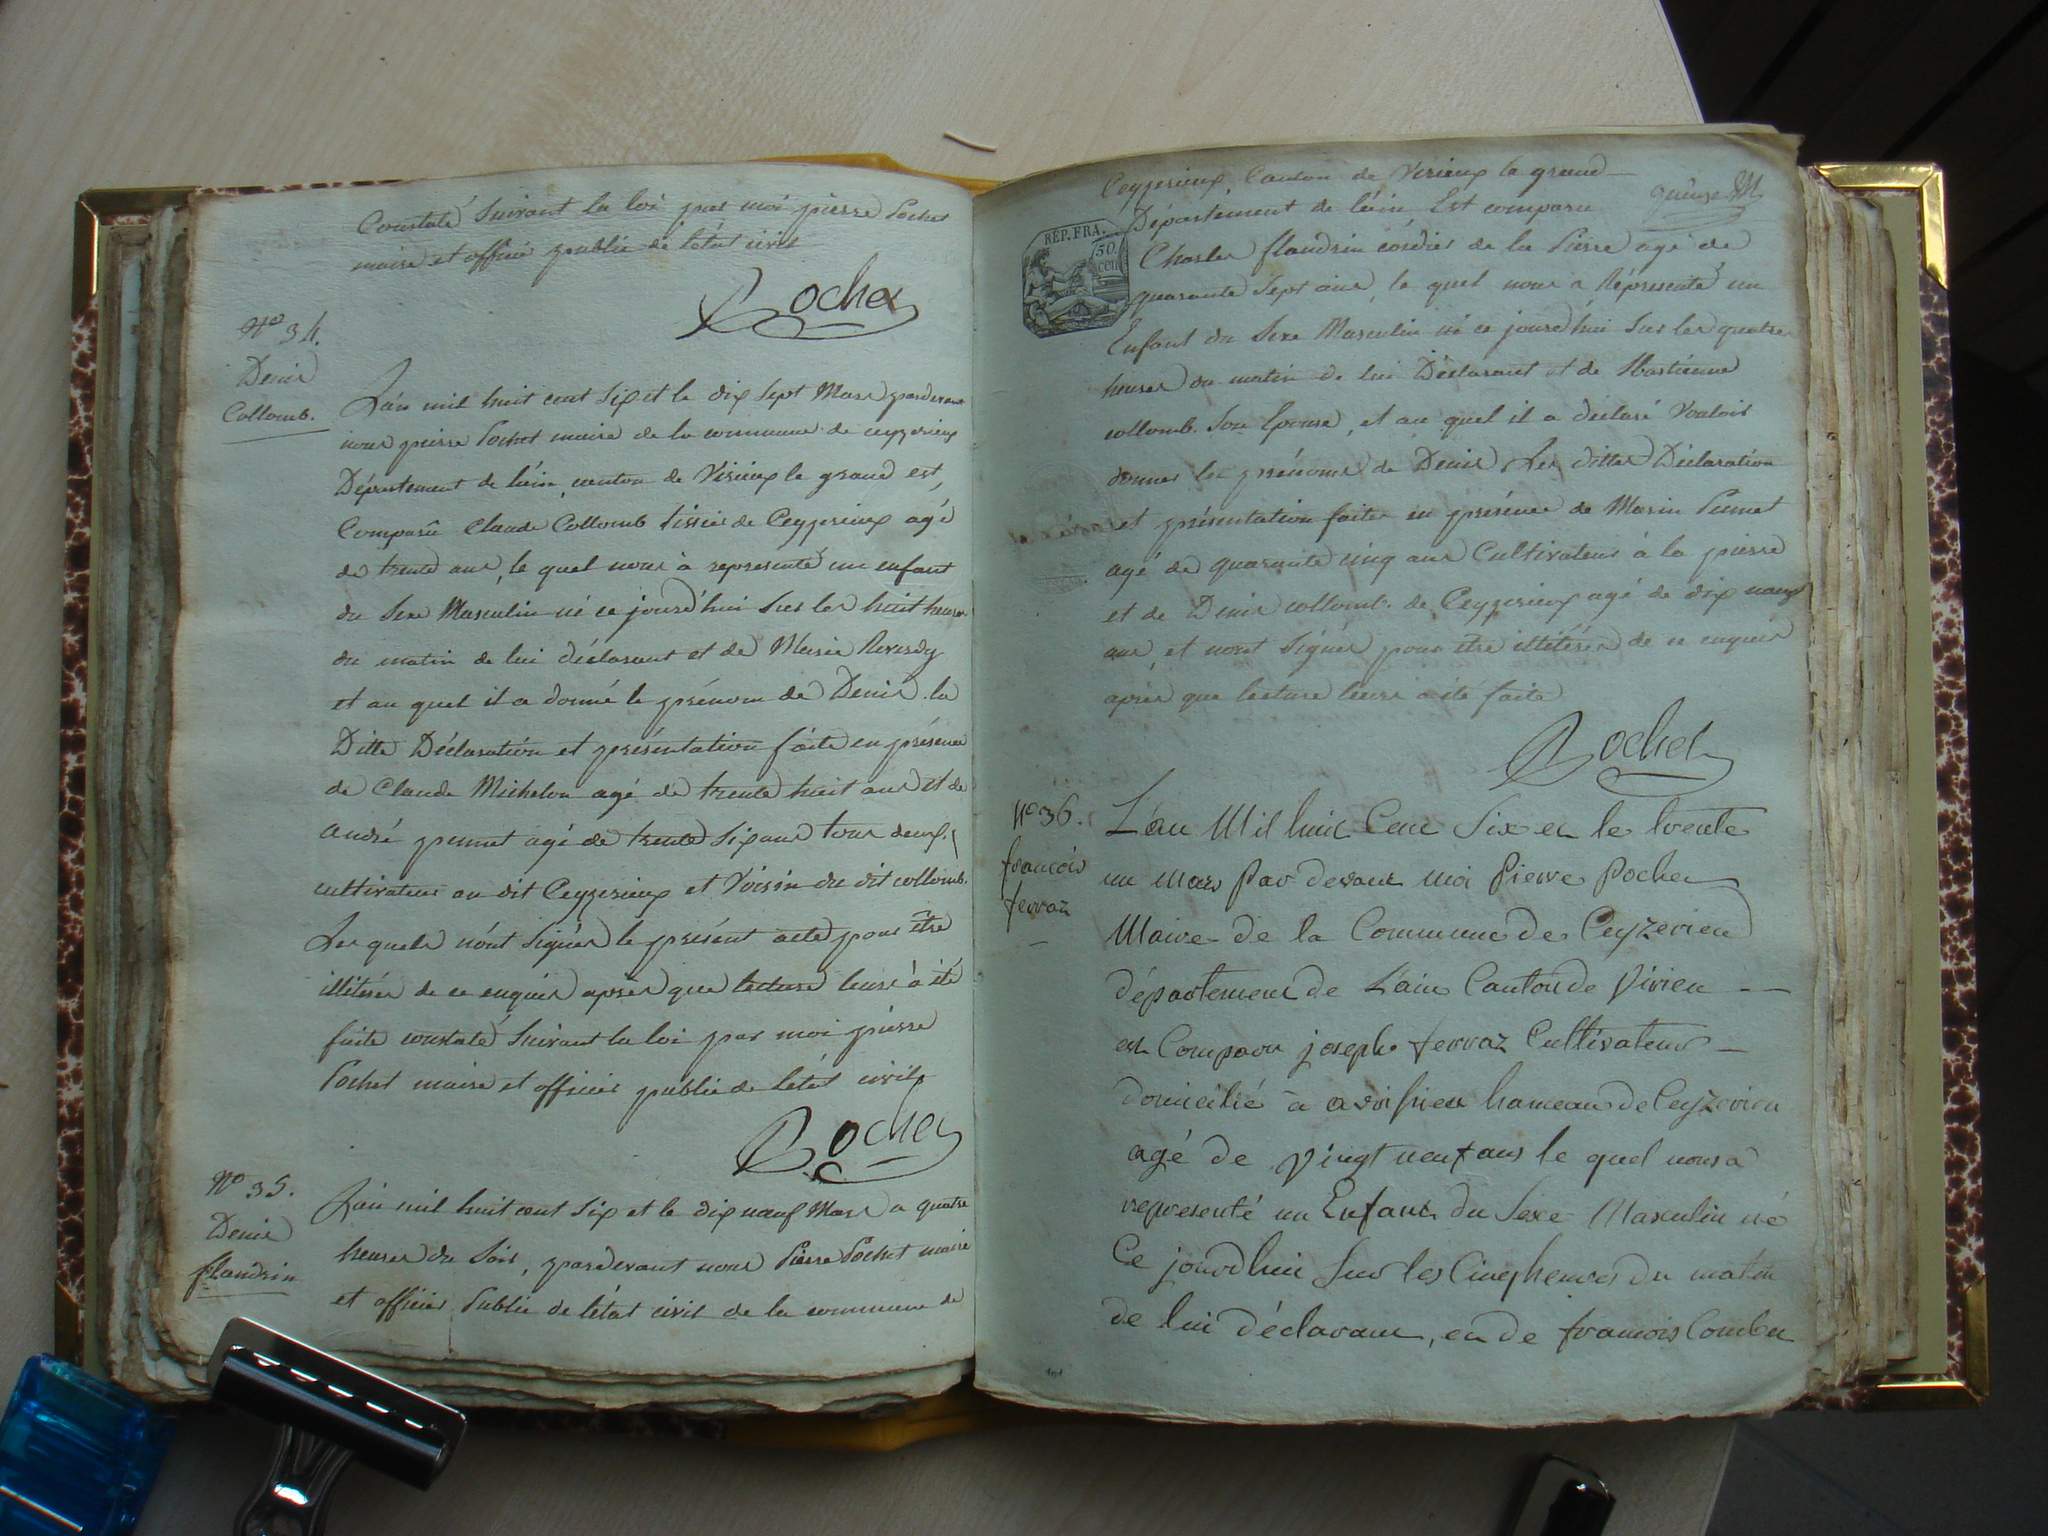 Constaté suivant la loi par moi pierre Pochet
maire et officier public de létat civil
Pochet
No 34.
Denis
Collomb.
L'an mil huit cent six et le dix sept Mars pardevant
nous pierre Pochet maire de la commune de ceyzerieux
Département de l'ain, canton de Virieux le grand est,
Comparû Claude Collomb tissier de Ceyzerieux agé
de trente ans, le quel nous à representé un enfant
du sexe Masculin né ce jourd'hui sur les huit heures
du matin de lui déclarant et de Marie Reverdy
et au quel il a donné le prénom de Denis. la
Ditte Déclaration et présentation faite en présence
de Claude Michelon agé de trente huit ans et de
andré pernet agé de trente six ans tous deux
cultivateurs au dit Ceyzerieux et Voisin du dit collomb.
Les quels n'ont signés le présent acte pour être
illitérés de ce enquis après que lecture leurs à été
faite constaté suivant la loi par moi pierre
Pochet maire et officier public de létat civil
Pochet
No 35.
Denis
flandrin
L'an mil huit cent six et le dix neuf Mars a quatre
heures du soir, pardevant nous Pierre Pochet maire
et officier Public de létat civil de la commune de
Ceyzerieux, Canton de Virieux le grand
REP. FRA.
50
CEN
Département de l'ain Est comparu
Charles flandrin cordier de la Pierre agé de
quarante sept ans, le quel nous a Réprésenté un
Enfant du Sexe Masculin né ce jourd'hui sur les quatre
heures du matin de lui Déclarant et de
collomb. son Epouse, et au quel il a déclaré Vouloir
donner les prénoms de Denis Les dittes Déclaration
et présentation faite en présence de Marin
agé de quarante cinq ans Cultivateur à la pierre
et de Denis collomb. de Ceyzerieux agé de dix neuf
ans, et n'ont signés pour être illitérés de ce enquis
après que lecture leurs a été faite
Pochet
No 36.
francois
ferraz
L'an Mil huit Cent Six et le trente
un mars Par devant moi Pierre Pochet
Maire de la Commune de Ceyzerieu
département de L'ain Canton de Virieu
est Comparu joseph ferraz Cultivateur
domicilié à avrissieu hameau de Ceyzerieu
agé de Vingt neuf ans le quel nous a
representé un Enfant du Sexe Masculin né
Ce jourdhui Sur les Cinq heures du matin
de lui déclarant, et de francois Combet